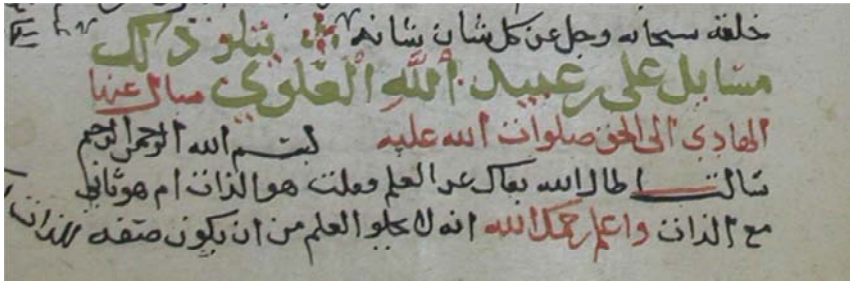 خلقه سبحانه وجل عن كل شان شانه يتلو ذلك
مسايل على بن عبيد الله العلوي سال عنها
الهادي الى الحق صلوات الله عليه بسم الله الرحمن الرحيم
سالت اطال الله بقاك عن العلم وقلت هو الذات ام هو ثابت
مع الذات واعلم رحمك الله انه لا يخلو العلم من ان يكون صفه للذات